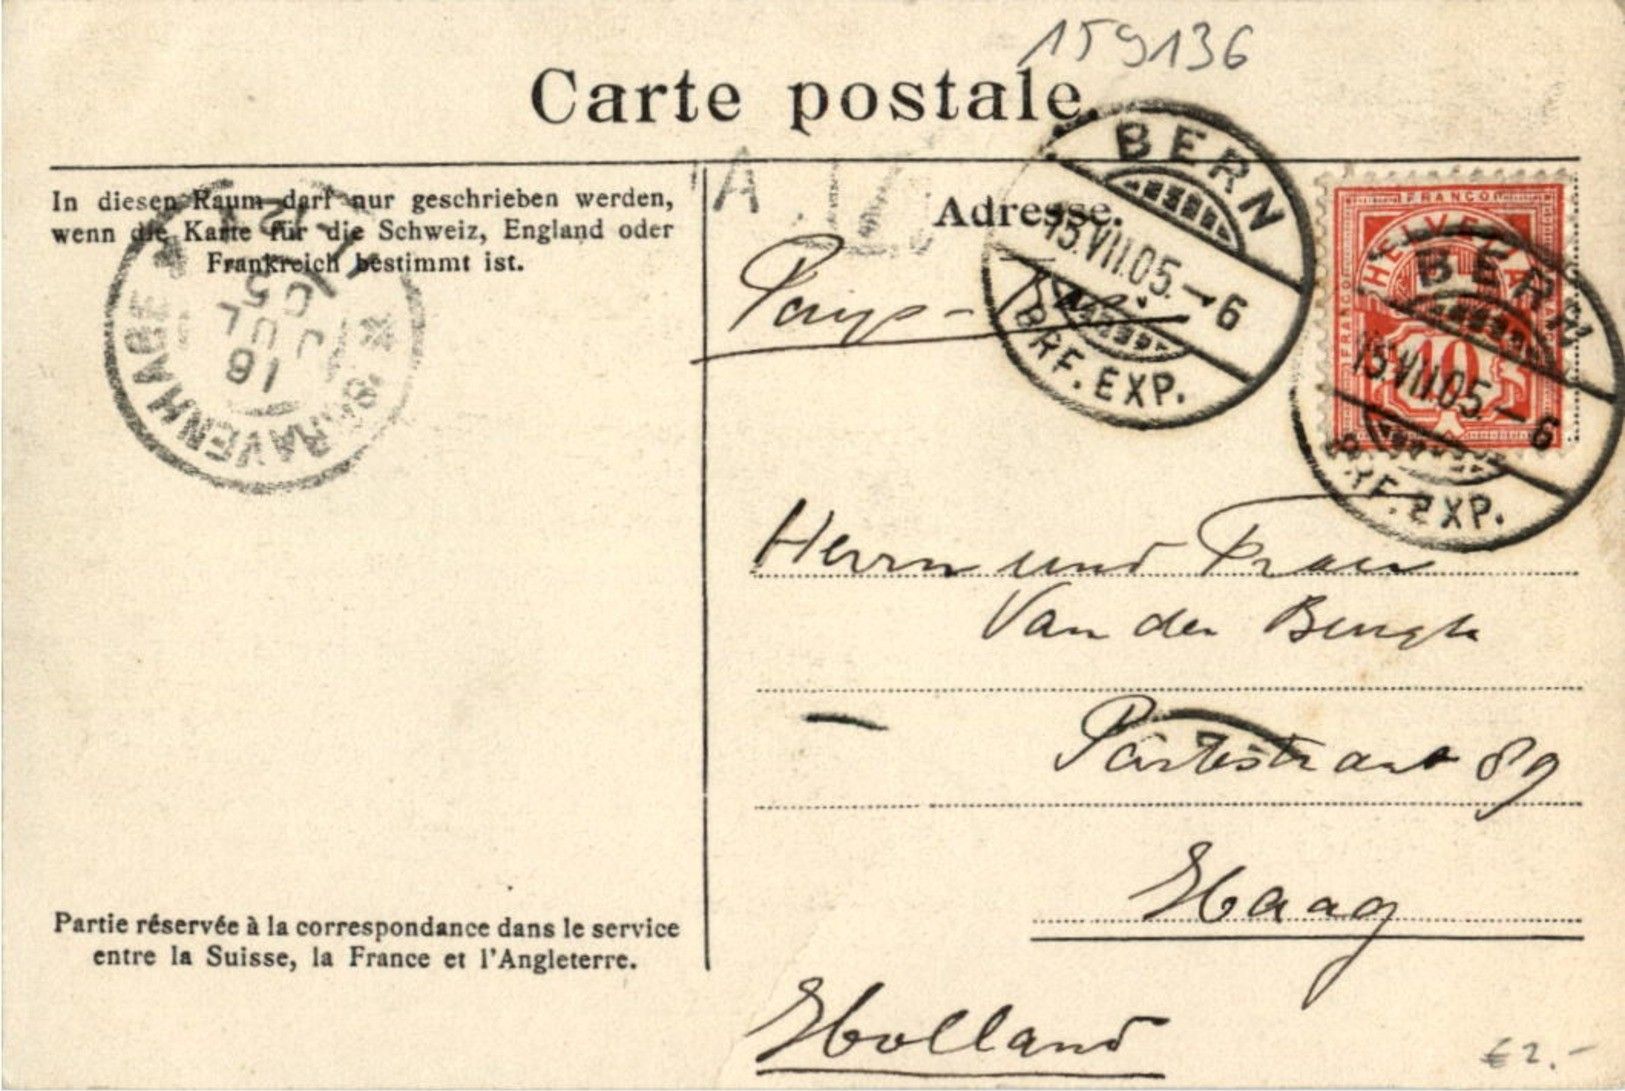 159136
Carte postale.
In diesen Raum darf nur geschrieben werden,
wenn die Karte für die Schweiz, England oder
Frankreich bestimmt ist.
'S GRAVENHAGE
18
JUL
05
Adresse.
BERN
15.VII.05.–6
BRF. EXP.
FRANCO
HELVETIA
FRANCO
10
BERN
15.VII.05.–6
BRF. EXP.
Herrn und Frau
Van den Bergh
89
Haag
Holland
Partie réservée à la correspondance dans le service
entre la Suisse, la France et l'Angleterre.
€ 2.–